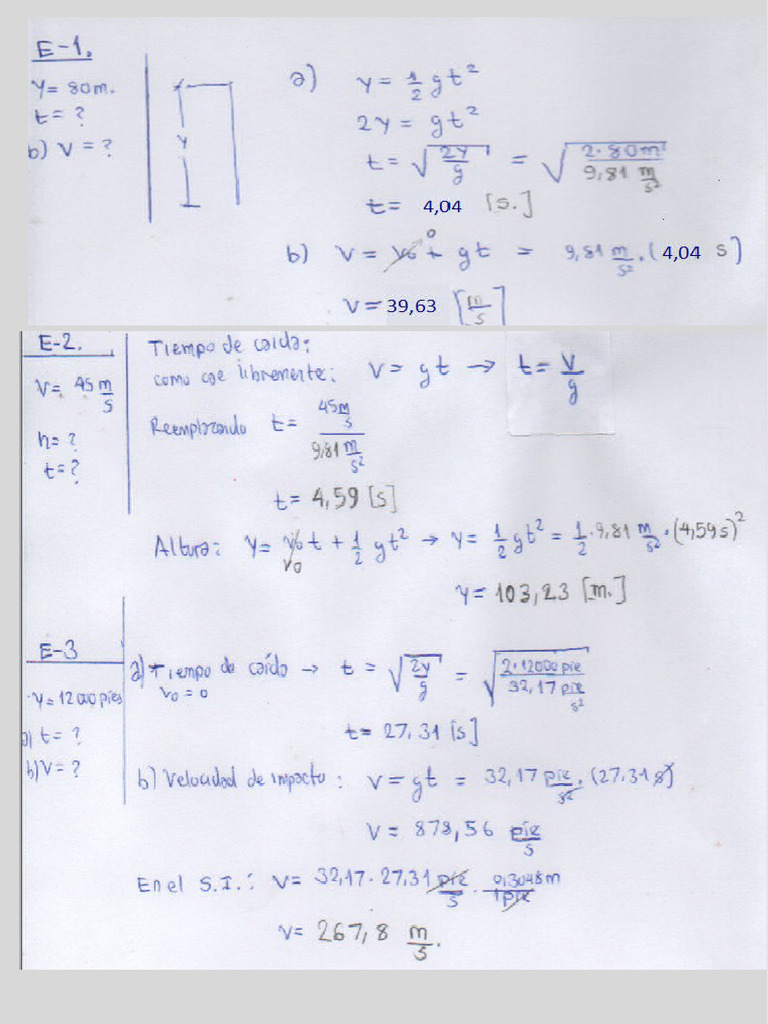 E-1.
y = 80m.
t = ?
b) V = ?
y
a) y = 1/2 g t²
2y = g t²
t = √(2y/g) = √(2·80m/(9,81 m/s²))
t = 4,04 [s.]
b) V = V₀ + g t = 9,81 m/s² · (4,04 s)
0
V = 39,63 [m/s]
E-2.
V = 45 m/s
h = ?
t = ?
Tiempo de caída:
como cae libremente: V = g t → t = V/g
Reemplazando t = (45 m/s)/(9,81 m/s²)
t = 4,59 [s]
Altura: y = V₀ t + 1/2 g t² → y = 1/2 g t² = 1/2 · 9,81 m/s² · (4,59 s)²
y = 103,23 [m.]
E-3
y = 12000 pies
a) t = ?
b) V = ?
a) Tiempo de caída → t = √(2y/g) = √(2·12000 pie/(32,17 pie/s²))
V₀ = 0
t = 27,31 [s]
b) Velocidad de impacto: V = g t = 32,17 pie/s² · (27.31 s)
V = 878,56 pie/s
En el S.I.: V = 32,17 · 27,31 pie/s · 0,3048m/1pie
V = 267,8 m/s.